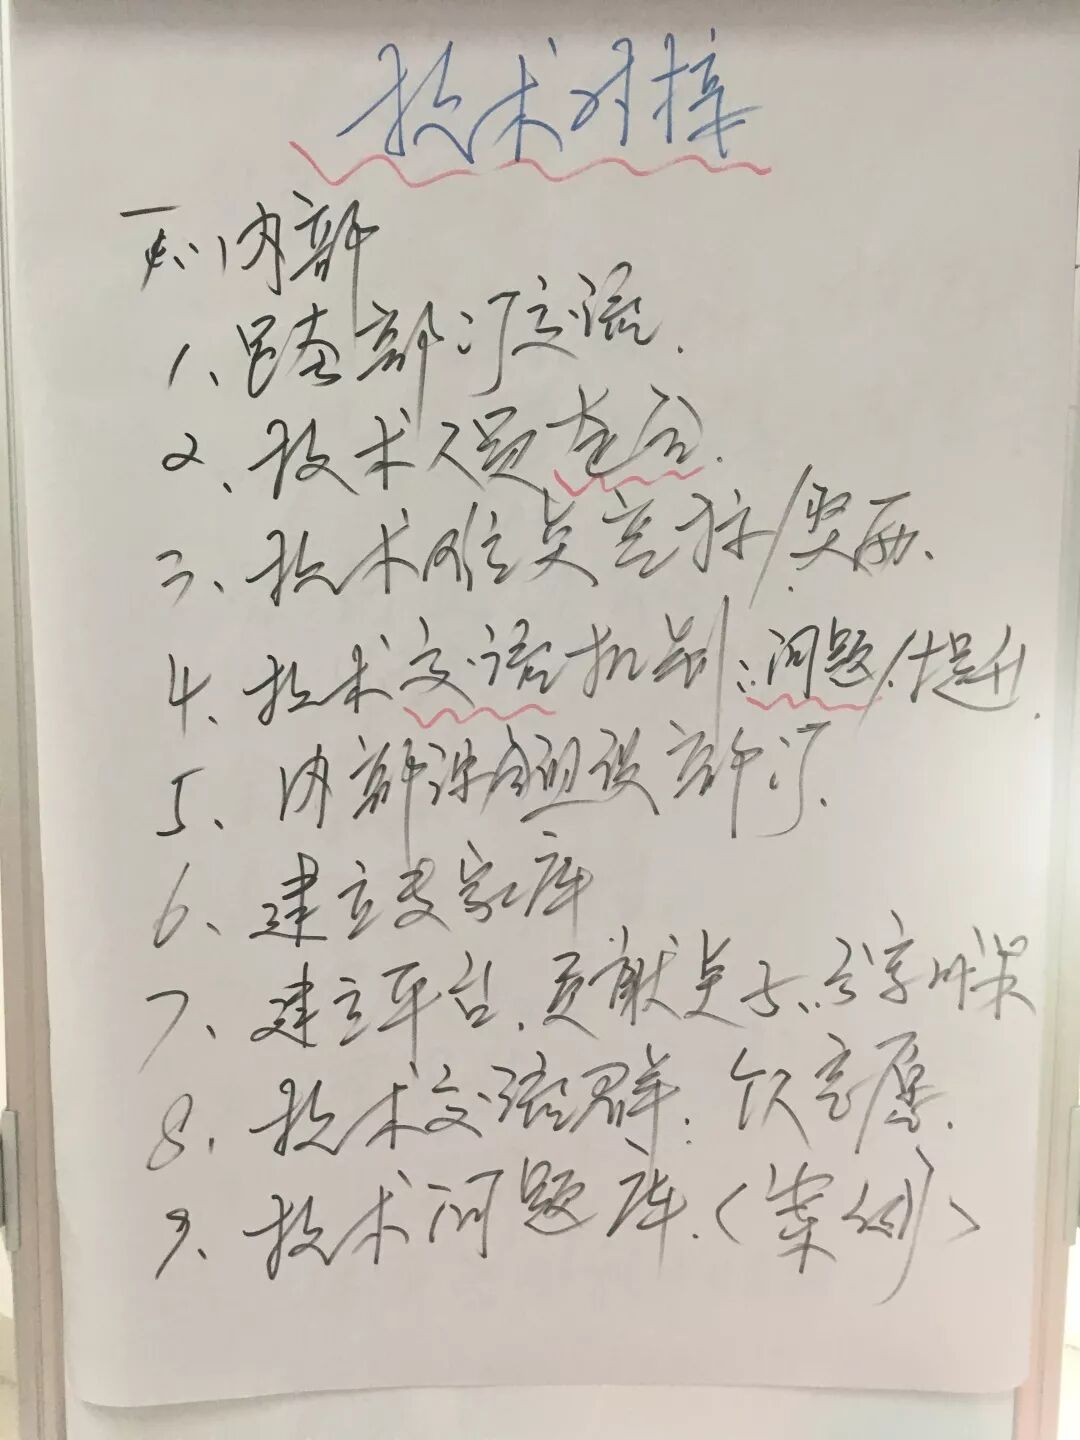 技术对接
一、内部
1、跨部门交流.
2、技术人员
3、技术难点竞标/奖励、
4、技术交流机制:问题/提升.
5、内部课题设部门.
6、建立专家库
7、建立平台.贡献点子、
8、技术交流群:
9、技术问题库.(案例)